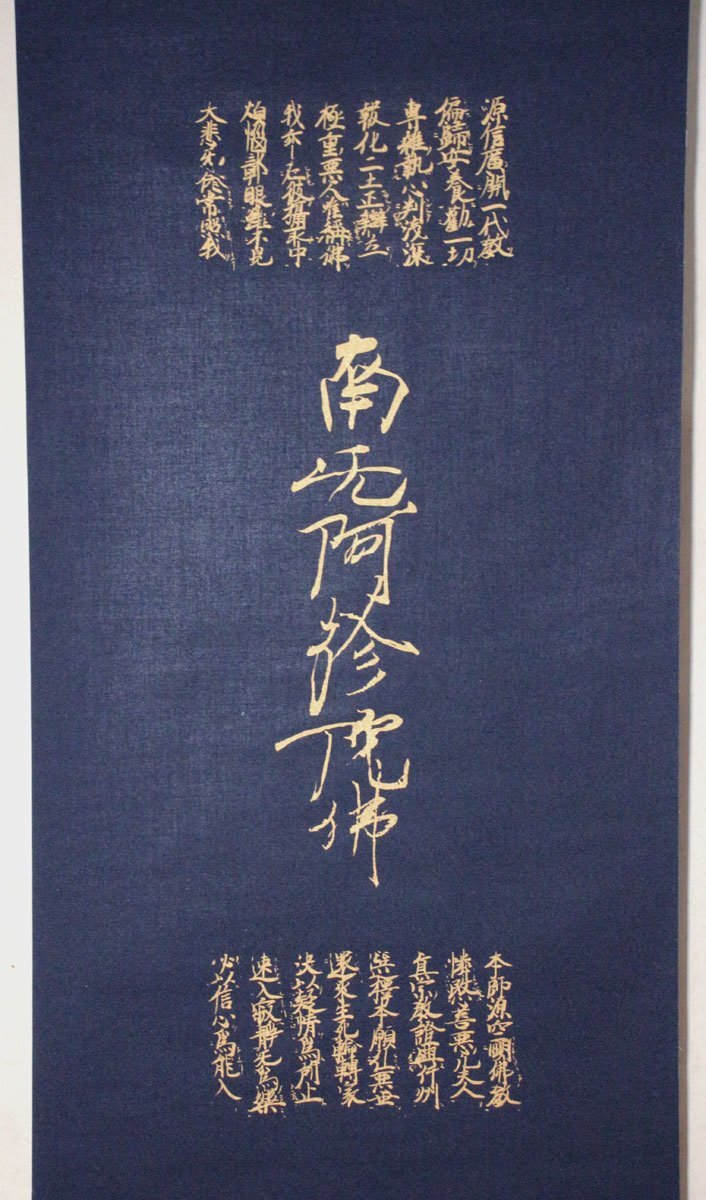 源信廣開一代教
偏歸安養勸一切
專雜執心判淺深
報化二土正辯立
極重惡人唯稱佛
我亦在彼攝取中
煩惱鄣眼雖不見
大悲无倦常照我
南无阿弥陀佛
本師源空明佛教
憐愍善惡凡夫人
真宗教證興片州
選擇本願弘惡世
還來生死輪轉家
決以疑情爲所止
速入寂靜无爲樂
必以信心爲能入